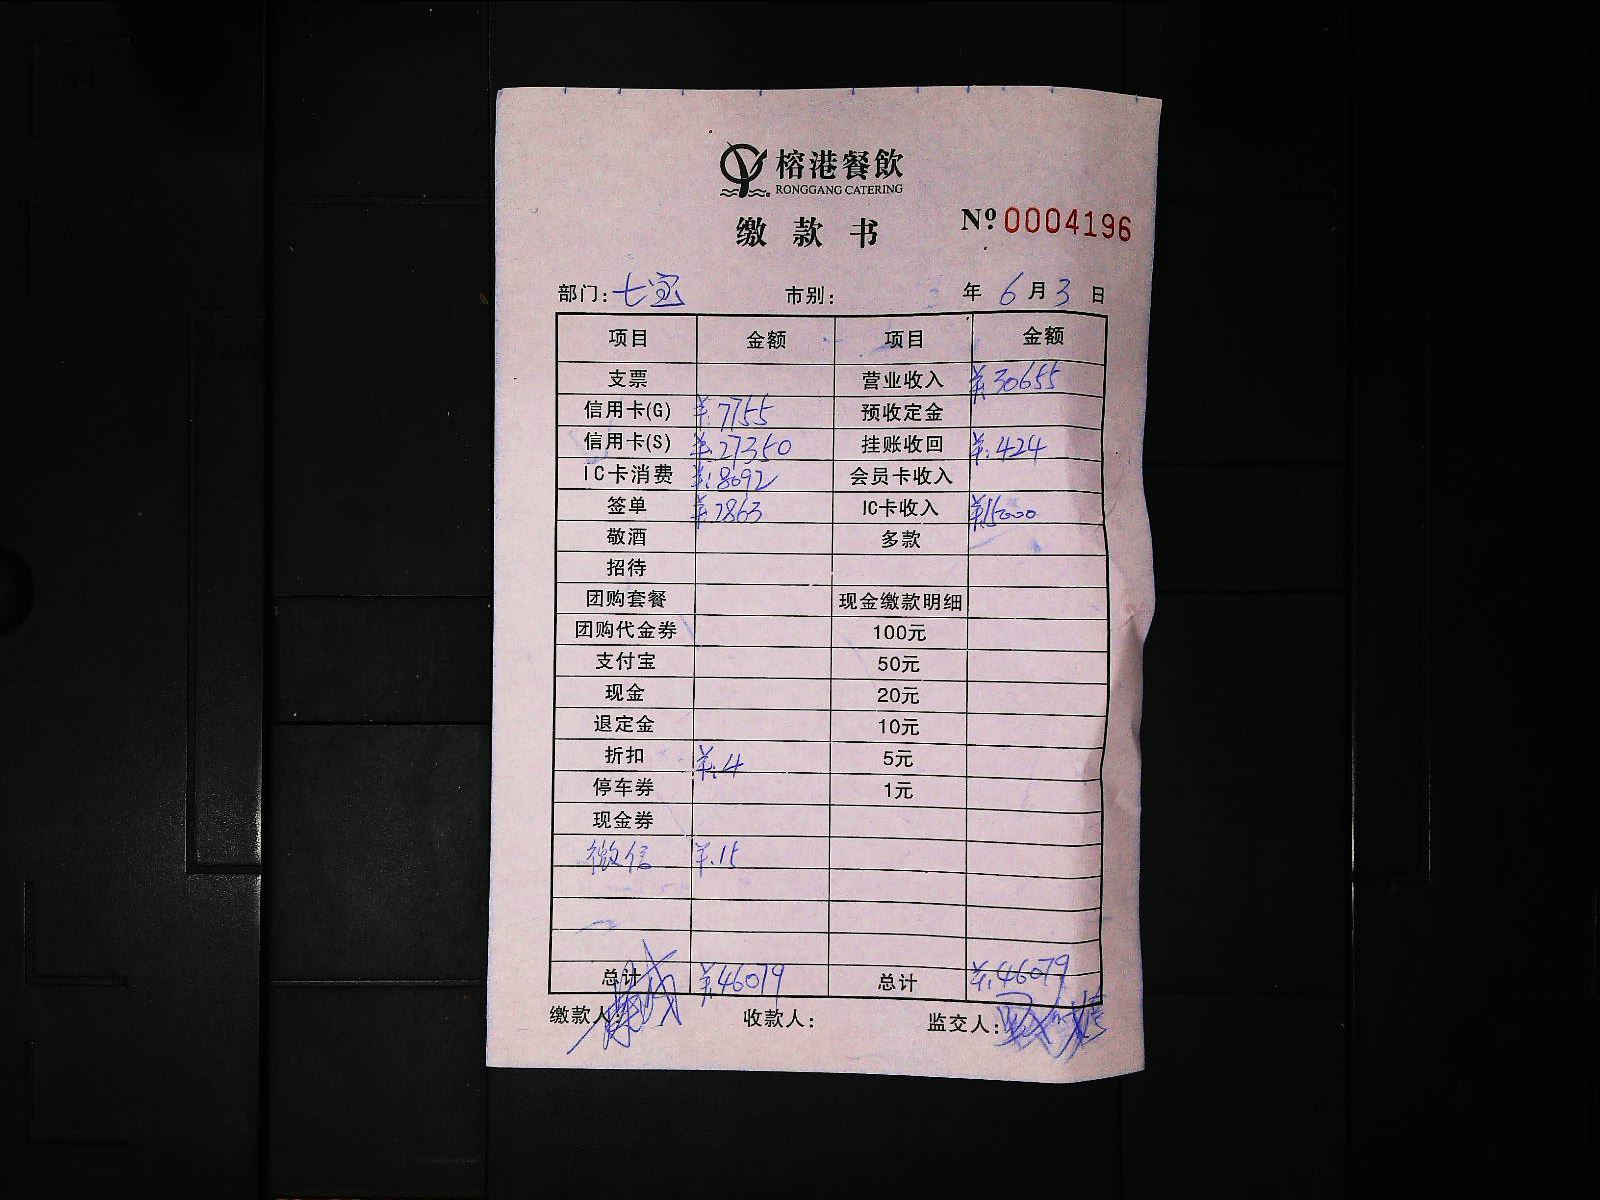 榕港餐飲
RONGGANG CATERING
缴款书
Nº 0004196
部门: 七宝 市别: 年 6 月 3 日
项目 金额 项目 金额
支票 营业收入 ¥:30655
信用卡(G) ¥:7755 预收定金
信用卡(S) ¥:27350 挂账收回 ¥:424
IC卡消费 ¥:8092 会员卡收入
签单 ¥:2863 IC卡收入 ¥:15000
敬酒 多款
招待
团购套餐 现金缴款明细
团购代金券 100元
支付宝 50元
现金 20元
退定金 10元
折扣 ¥:4 5元
停车券 1元
现金券
微信 ¥:15
总计 ¥:46079 总计 ¥:46079
缴款人: 收款人: 监交人: